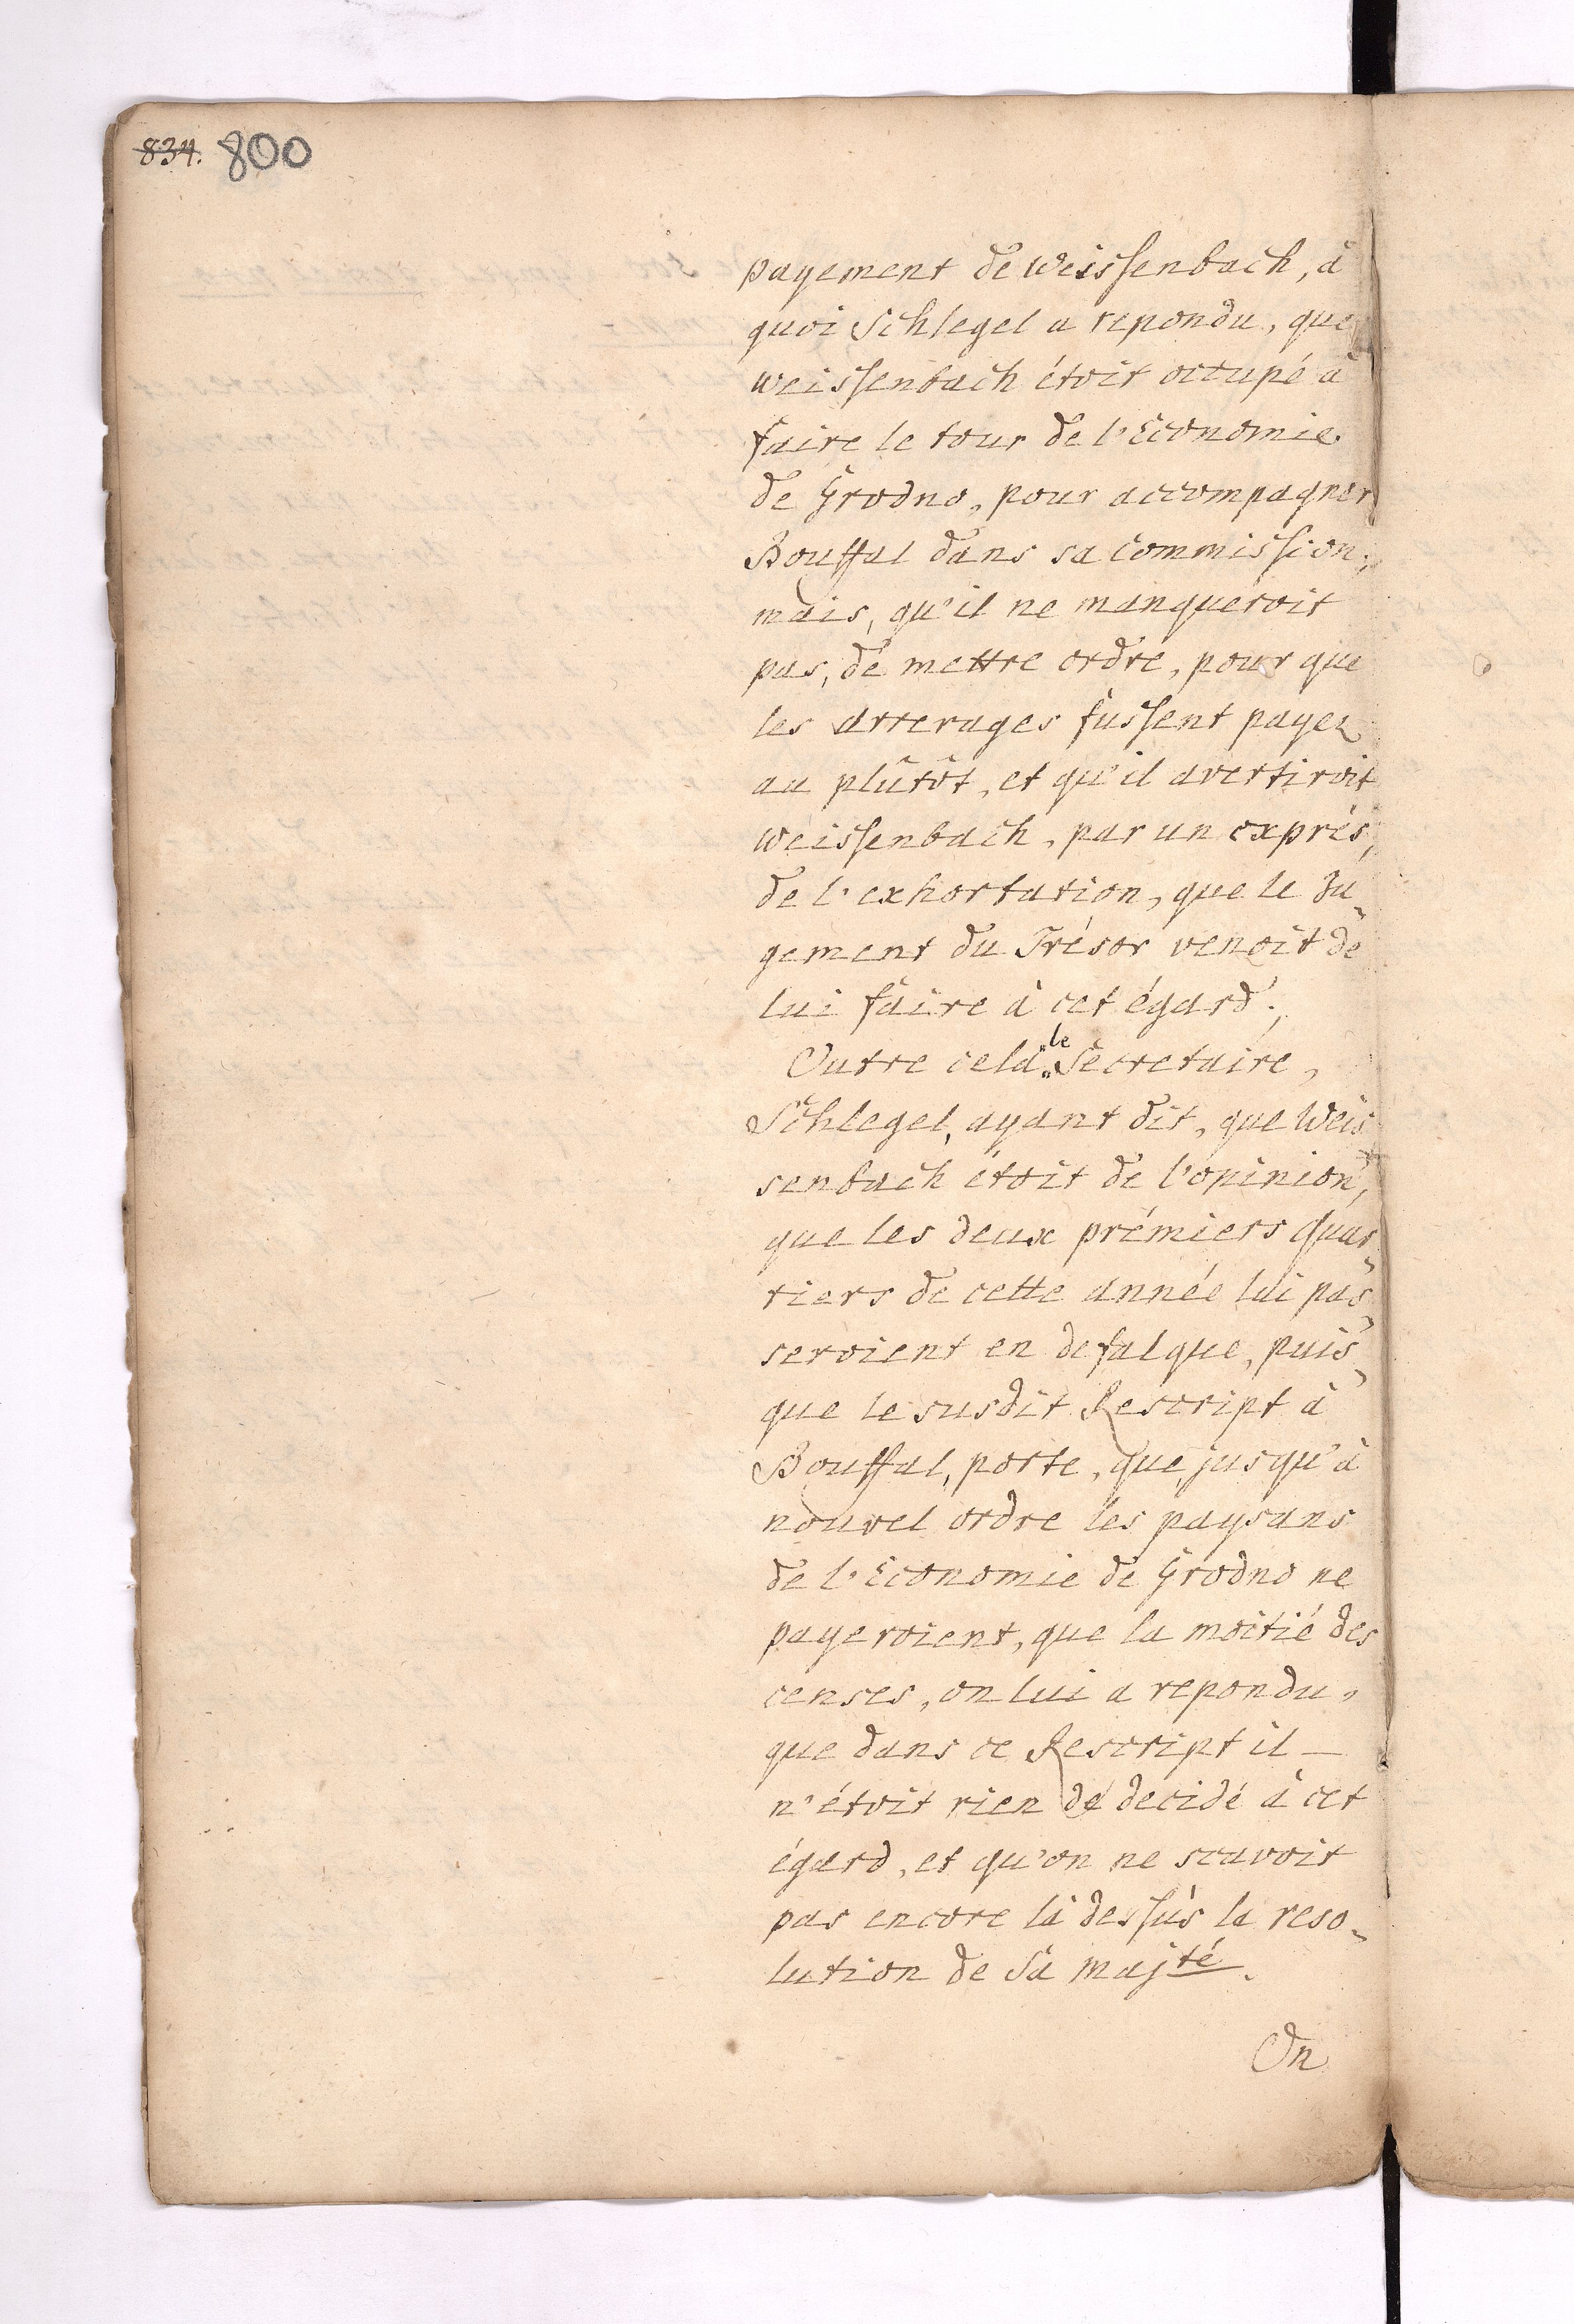 834. 800
payement de Weissenbach, à
quoi Schlegel a repondu, que
Weissenbach étoit occupé à
faire le tour de l'Economie
de Grodno, pour accompagner
Bouffal dans sa commission;
mais, qu'il ne manqueroit
pas, de mettre ordre, pour que
les arrerages fussent payez
au plûtôt, et qu'il avertiroit
Weissenbach, par un exprés,
de l'exhortation, que le Ju-
gement du Trésor venoit de
lui faire à cet égard;
Outre cela le Secretaire,
Schlegel, ayant dit, que Weis-
senbach étoit de l'opinion,
que les deux prémiers Quar-
tiers de cette année lui pas-
seroient en defalque, puis-
que le susdit Rescript à
Bouffal, porte, que, jusqu'à
nouvel ordre les paysans
de l'Economie de Grodno ne
payeroient, que la moitié des
censes, on lui a repondu,
que dans ce Rescript il
n'étoit rien de decidé à cet
égard, et qu'on ne scavoit
pas encore là dessus la reso-
lution de Sa Majté.
On